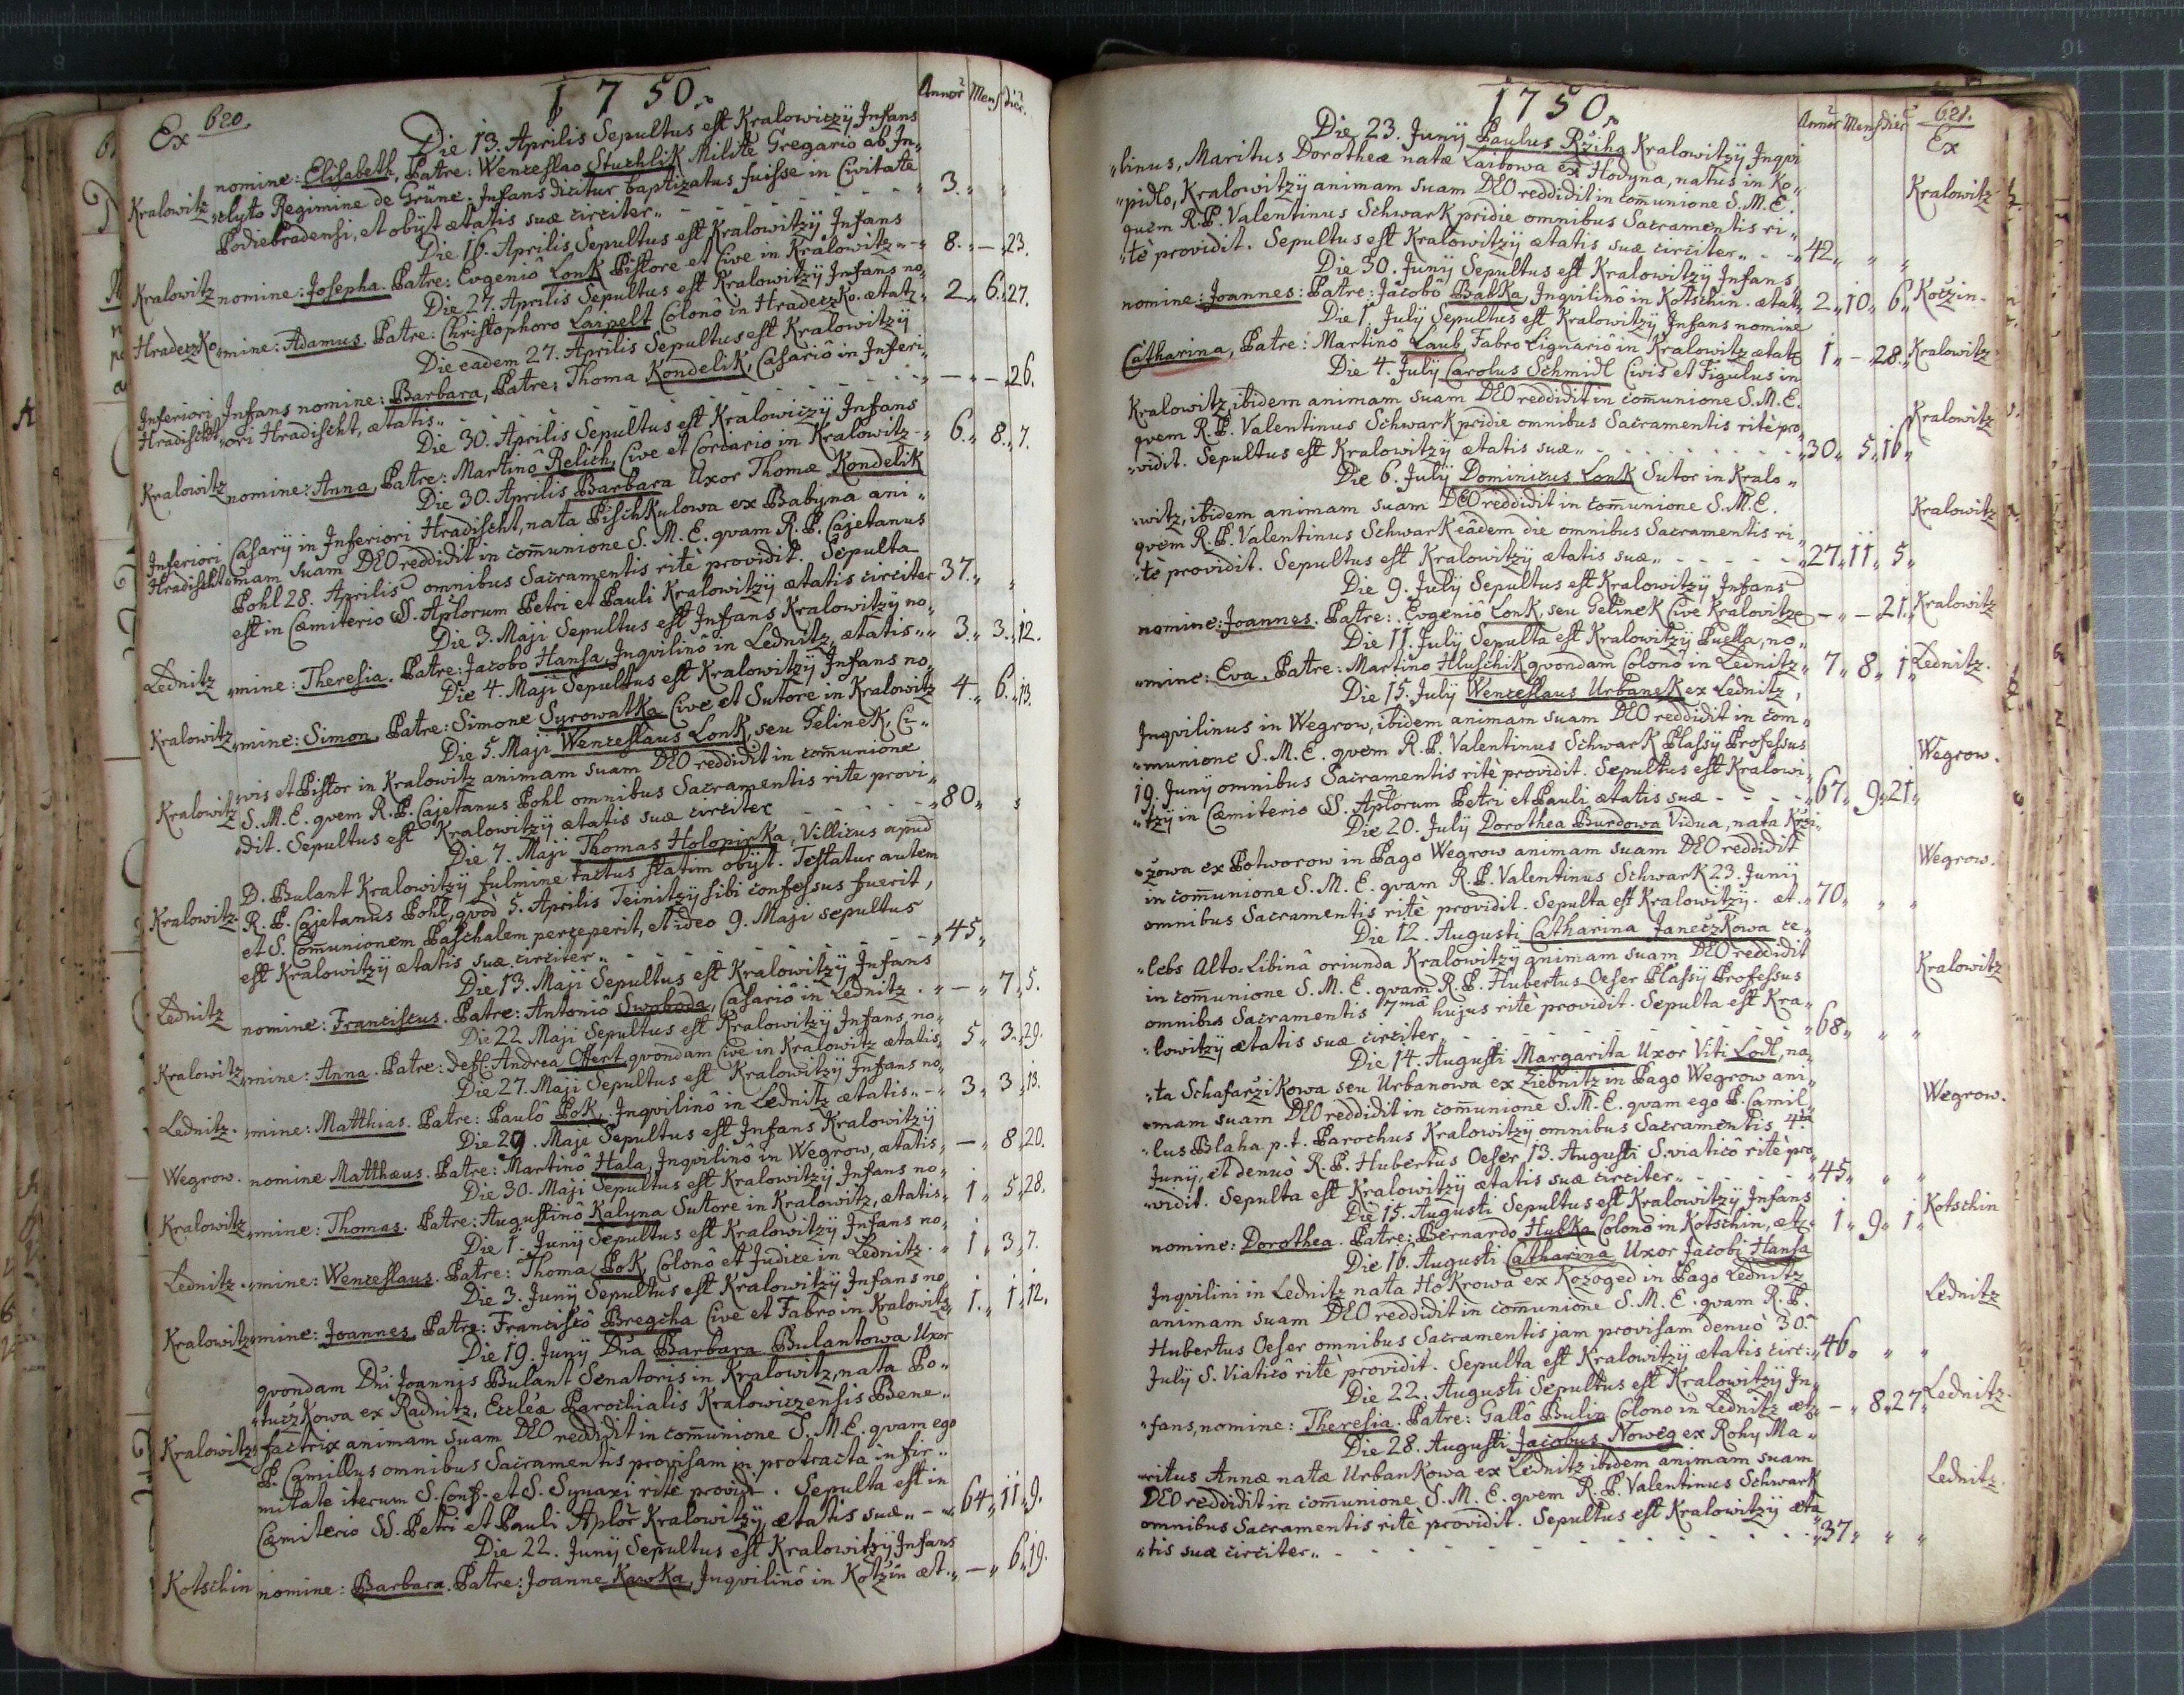 Ex 620
1750.
Annor Mens Dier.
Die 13. Aprilis Sepultus est Kralowiczÿ Infans
nomine: Elisabeth, Patre: Wenceslao Stuchlik Milite Gregario ab In„
Kralowitz „clyto Regimine de Grüne. Infans dicitur baptizatus fuisse in Civitate
Podiebradensi, et obÿt ætatis suæ circiter„ - - - - „ 3. „ „
Die 16. Aprilis Sepultus est Kralowitzÿ Infans
Kralowitz nomine: Josepha. Patre: Evgeniô Lonk Pistore et Cive in Kralowitz „ - „ 8. „ — „ 23.
Die 27. Aprilis Sepultus est Kralowitzÿ Infans no„
Hradeczko „mine: Adamus. Patre: Christophoro Laipelt Colonô in Hradeczko. ætat„ 2„ 6„ 27.
Die eadem 27. Aprilis Sepultus est Kralowitzÿ
Inferiori Infans nomine: Barbara, Patre: Thoma Kondelik, Casariô in Inferi„
Hradischt „ori Hradischt, ætatis„ - - - - „ — „ — „ 26.
Die 30. Aprilis Sepultus est Kralowiczÿ Infans
Kralowitz nomine: Anna, Patre: Martinô Relich, Cive et Cordario in Kralowitz - „ 6„ 8„ 7.
Die 30. Aprilis Barbara Uxor Thomæ Kondelik
Inferiori Casarÿ in Inferiori Hradischt, nata Pischkulowa ex Babÿna ani„
Hradischt „mam suam DEO reddidit in com̄unione S. M. E. qvam R. P. Cajetanus
Pohl 28. Aprilis omnibus Sacramentis ritè providit. Sepulta
est in Cæmiterio SS. Aplorum Petri et Pauli Kralowitzÿ ætatis circiter 37. „ „
Die 3. Maji Sepultus est Infans Kralowitzÿ no„
Lednitz „mine: Theresia. Patre: Jacobo Hansa, Inqvilinô in Lednitz, ætatis„ „ 3„ 3„ 12.
Die 4. Maji Sepultus est Kralowitzÿ Infans no„
Kralowitz „mine: Simon, Patre: Simone Syrowatka Cive et Sutore in Kralowitz 4„ 6„ 13.
Die 5. Maji Wenceslaus Lonk, seu Gelinek, Ci„
Kralowitz „vis et Pistor in Kralowitz animam suam DEO reddidit in com̄unione
S. M. E. qvem R. P. Cajetanus Pohl omnibus Sacramentis rite provi„
„dit. Sepultus est Kralowitzÿ ætatis suæ circiter - - - „ 80„ „
Die 7. Maji Thomas Holopirka, Villicus apud
D. Bulant Kralowitzÿ fulmine tactus statim obÿt. Testatur autem
Kralowitz. R. P. Cajetanus Pohl, qvod 5. Aprilis Teinitzÿ sibi confessus fuerit,
et S. Com̄unionem Paschalem perceperit, et ideo 9. Maji sepultus
est Kralowitzÿ ætatis suæ circiter„ - - - - „ 45„
Die 13. Maji Sepultus est Kralowitzÿ Infans
Lednitz nomine: Franciscus. Patre: Antoniô Swoboda, Casariô in Lednitz. „ — „ 7„ 5.
Die 22 Maji Sepultus est Kralowitzÿ Infans, no„
Kralowitz „mine: Anna. Patre: deff. Andrea Offert qvondam Cive in Kralowitz ætatis„ 5„ 3„ 29.
Die 27. Maji Sepultus est Kralowitzÿ Infans no„
Lednitz. „mine: Matthias. Patre: Paulô Pok, Inqvilinô in Lednitz ætatis„ - „ 3„ 3„ 13.
Die 29. Maji Sepultus est Infans Kralowitzÿ
Wegrow. nomine Matthæus. Patre: Martinô Hala, Inqvilinô in Wegrow, ætatis„ — „ 8„ 20.
Die 30. Maji Sepultus est Kralowitzÿ Infans no„
Kralowitz „mine: Thomas. Patre: Augustinô Kalyna Sutore in Kralowitz, ætatis„ 1„ 5„ 28.
Die 1. Junÿ Sepultus est Kralowitzÿ Infans no„
Lednitz. „mine: Wenceslaus. Patre: Thoma Pok, Colonô et Judice in Lednitz. „ 1„ 3„ 7.
Die 3. Junÿ Sepultus est Kralowitzÿ Infans no„
Kralowitz „mine: Joannes, Patre: Franciscô Bregcha Cive et Fabro in Kralowitz„ 1„ 1„ 12.
Die 19. Junÿ Dn̄a Barbara Bulantowa Uxor
qvondam Dn̄i Joannis Bulant Senatoris in Kralowitz, nata Po„
„tuczkowa ex Radnitz, Eccleæ Parochialis Kralowiczensis Bene„
Kralowitz „factrix animam suam DEO reddidit in com̄unione S. M. E. qvam ego
P. Camillus omnibus Sacramentis provisam in protracta infir„
mitate iterum S. Conf. et S. Synaxi ritè providi. Sepulta est in
Cæmiterio SS. Petri et Pauli Aplor Kralowitzÿ ætatis suæ„ - „ 64„ 11„ 9.
Die 22. Junÿ Sepultus est Kralowitzÿ Infans
Kotschin nomine: Barbara. Patre: Joanne Kawka, Inqvilinô in Kotzin æt. „ — „ 6„ 19.
1750.
Annor Mens Dier 621.
Ex
Die 23. Junÿ Paulus Rziha Kralowitzÿ Inqvi
„linus, Maritus Dorotheæ natæ Laibowa ex Hodyna, natus in Ko„
„pidlo, Kralowitzÿ animam suam DEO reddidit in com̄unione S. M. E. Kralowitz
quem R. P. Valentinus Schwark pridie omnibus Sacramentis ri„
„tè providit. Sepultus est Kralowitzÿ ætatis suæ circiter„ - - „ 42„ „ „
Die 30. Junÿ Sepultus est Kralowitzÿ Infans,
nomine: Joannes: Patre: Jacobô Babka, Inqvilinô in Kotschin. ætat„ 2„ 10„ 6„ Koczin.
Die 1. Julÿ Sepultus est Kralowitzÿ Infans nomine
Catharina, Patre: Martinô Laub, Fabro Lignariô in Kralowitz ætat„ 1„ — „ 28„ Kralowitz
Die 4. Julÿ Carolus Schmidl Civis et Figulus in
Kralowitz, ibidem animam suam DEO reddidit in com̄unione S. M. E.
qvem R. P. Valentinus Schwark pridie omnibus Sacramentis ritè pro„ Kralowitz
„vidit. Sepultus est Kralowitzÿ ætatis suæ„ - - - - „ 30„ 5„ 16„
Die 6. Julÿ Dominicus Lonk Sutor in Kralo„
„witz, ibidem animam suam DEO reddidit in com̄unione S. M. E.
qvem R. P. Valentinus Schwark eâdem die omnibus Sacramentis ri„ Kralowitz
„tè providit. Sepultus est Kralowitzÿ ætatis suæ„ - - - - „ 27„ 11„ 5„
Die 9. Julÿ Sepultus est Kralowitzÿ Infans
nomine: Joannes. Patre: Evgeniô Lonk, seu Gelinek Cive Kralowitze — „ — „ 21„ Kralowitz
Die 11. Julÿ Sepulta est Kralowitzÿ Puella, no„
„mine: Eva. Patre: Martino Hluschik qvondam Colonô in Lednitz„ 7„ 8„ 1„ Lednitz.
Die 15. Julÿ Wenceslaus Urbanek ex Lednitz,
Inqvilinus in Wegrow, ibidem animam suam DEO reddidit in com„
„munione S. M. E. qvem R. P. Valentinus Schwark Plassÿ Professus Wegrow.
19. Junÿ omnibus Sacramentis ritè providit. Sepultus est Kralowi„
„tzÿ in Cæmiterio SS. Aplorum Petri et Pauli, ætatis suæ - - - „ 67„ 9„ 21„
Die 20. Julÿ Dorothea Burdowa Vidua, nata Krzi„
„zowa ex Potworow in Pago Wegrow animam suam DEO reddidit
in com̄unione S. M. E. qvam R. P. Valentinus Schwark 23. Junÿ Wegrow.
omnibus Sacramentis ritè providit. Sepulta est Kralowitzÿ. æt. „ 70„ „ „
Die 12. Augusti Catharina Janeczkowa ce„
„lebs Alto-Libinâ oriunda Kralowitzÿ animam suam DEO reddidit
in com̄unione S. M. E. qvam R. P. Hubertus Oeser Plassÿ Professus Kralowitz
omnibus Sacramentis 7mâ hujus ritè providit. Sepulta est Kra„
„lowitzÿ ætatis suæ circiter„ - - - - „ 68„ „ „
Die 14. Augusti Margarita Uxor Viti Lodl, na„
„ta Schafarzikowa seu Urbanowa ex Ziebnitz in Pago Wegrow ani„
„mam suam DEO reddidit in com̄unione S. M. E. qvam ego P. Camil„ Wegrow.
„lus Blaha p. t. Parochus Kralowitzÿ omnibus Sacramentis 4ta
Junÿ, et denuò R. P. Hubertus Oeser 13. Augusti S. viaticô ritè pro„
„vidit. Sepulta est Kralowitzÿ ætatis suæ circiter„ - - - „ 45„ „ „
Die 15. Augusti Sepultus est Kralowitzÿ Infans
nomine: Dorothea. Patre: Bernardo Hubka Colono in Kotschin, æt„ 1„ 9„ 1„ Kotschin
Die 16. Augusti Catharina Uxor Jacobi Hansa
Inqvilini in Lednitz nata Hokrowa ex Kozoged in Pago Lednitz
animam suam DEO reddidit in com̄unione S. M. E. qvam R. P. Lednitz
Hubertus Oeser omnibus Sacramentis jam provisam denuò 30.
Julÿ S. Viaticô ritè providit. Sepulta est Kralowitzÿ ætatis circ: „ 46„ „ „
Die 22. Augusti Sepultus est Kralowitzÿ In„
„fans, nomine: Theresia. Patre: Gallô Bulin Colono in Lednitz æt„ — „ 8„ 27„ Lednitz.
Die 28. Augusti Jacobus Noweg ex Rohy Ma„
„ritus Annæ natæ Urbankowa ex Lednitz ibidem animam suam
DEO reddidit in com̄unione S. M. E. qvem R. P. Valentinus Schwark Lednitz.
omnibus Sacramentis ritè providit. Sepultus est Kralowitzÿ æta„
„tis suæ circiter„ - - - - „ 37„ „ „